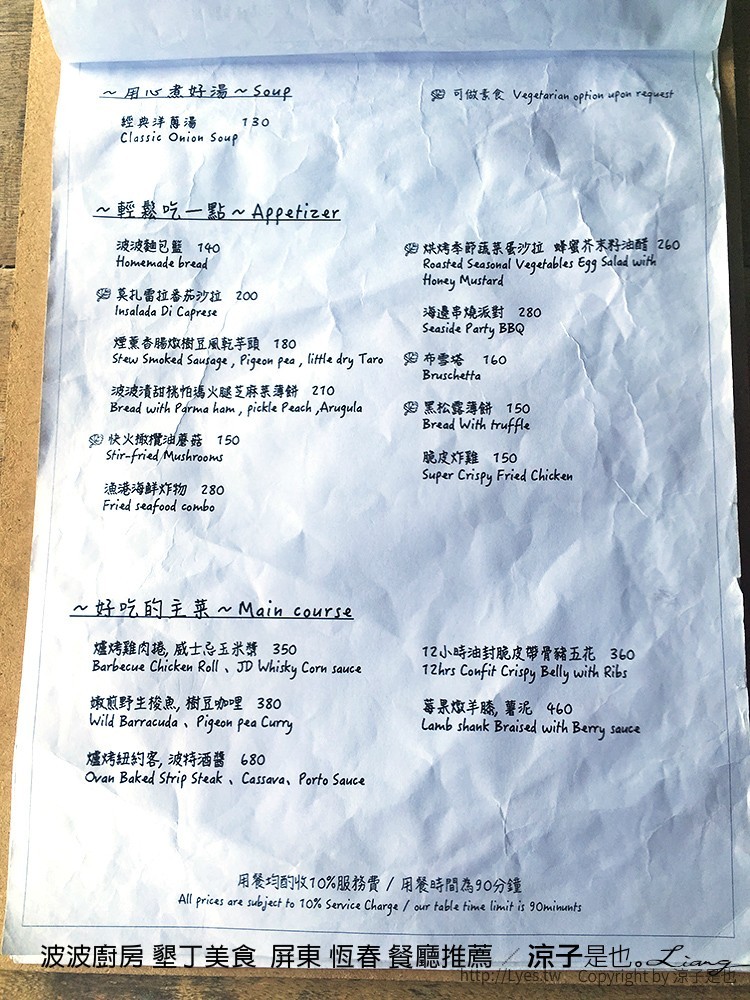 ~用心煮好湯~Soup
可做素食 Vegetarian option upon request
經典洋蔥湯 130
Classic Onion Soup
~輕鬆吃一點~Appetizer
波波麵包籃 140
Homemade bread
莫扎雷拉番茄沙拉 200
Insalada Di Caprese
煙熏香腸燉樹豆風乾芋頭 180
Stew Smoked Sausage , Pigeon pea , little dry Taro
波波漬甜桃帕瑪火腿芝麻葉薄餅 210
Bread with Parma ham , pickle Peach ,Arugula
快火橄欖油蘑菇 150
Stir-fried Mushrooms
漁港海鮮炸物 280
Fried seafood combo
烘烤季節蔬菜蛋沙拉 蜂蜜芥末籽油醋 260
Roasted Seasonal Vegetables Egg Salad with
Honey Mustard
海邊串燒派對 280
Seaside Party BBQ
布雪塔 160
Bruschetta
黑松露薄餅 150
Bread With truffle
脆皮炸雞 150
Super Crispy Fried Chicken
~好吃的主菜~Main course
爐烤雞肉捲, 威士忌玉米醬 350
Barbecue Chicken Roll 、JD Whisky Corn sauce
嫩煎野生梭魚, 樹豆咖哩 380
Wild Barracuda 、Pigeon pea Curry
爐烤紐約客, 波特酒醬 680
Ovan Baked Strip Steak 、Cassava、Porto Sauce
12小時油封脆皮帶骨豬五花 360
12hrs Confit Crispy Belly with Ribs
莓果燉羊膝, 薯泥 460
Lamb shank Braised with Berry sauce
用餐均酌收10%服務費 / 用餐時間為90分鐘
All prices are subject to 10% Service Charge / our table time limit is 90minunts
波波廚房 墾丁美食 屏東 恆春 餐廳推薦 / 涼子是也。Liang
http://Lyes.tw Copyright by 涼子是也